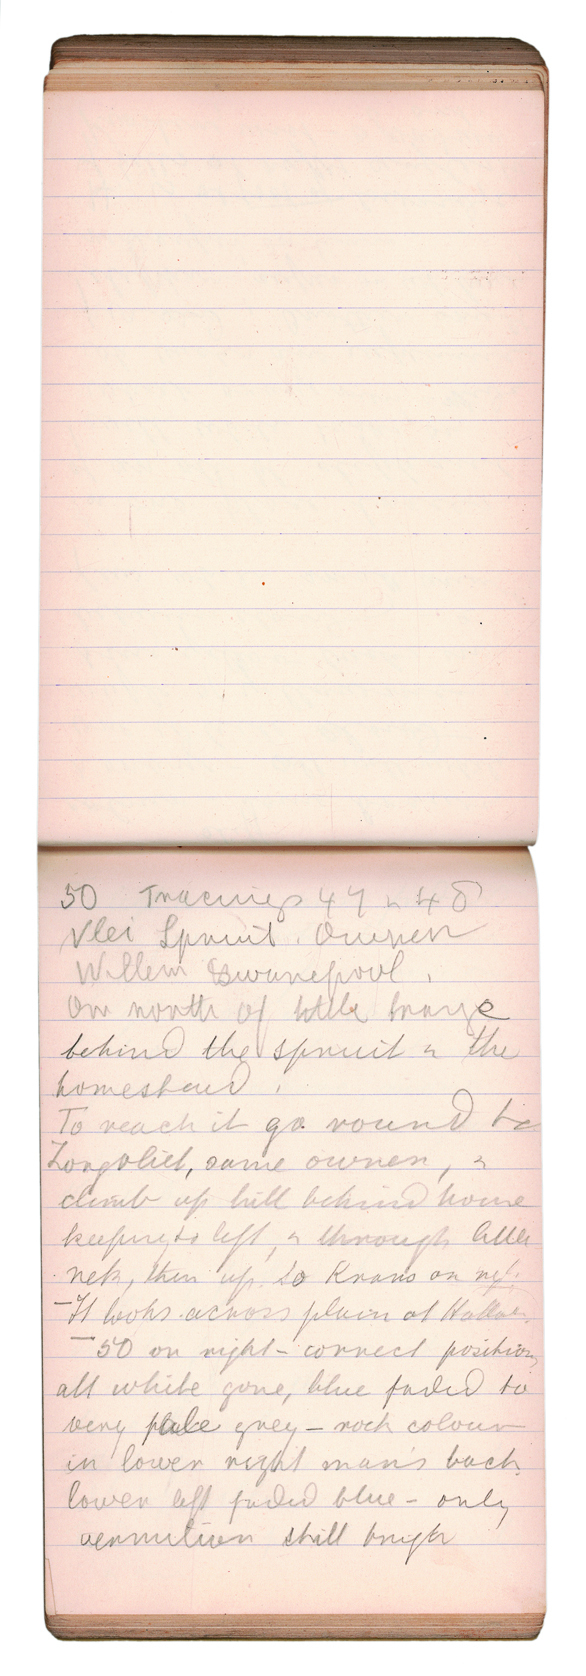 50 Tracings 47 & 48
Vlei Spruit. Owner
Willem Swanepoel.
On north of little range
behind the spruit & the
homestead.
To reach it go round to
same owner, &
climb up hill behind house
keeping to left, & through little
nek, then up to Krans on
- It looks across plain at
- 50 on right - correct position
all white gone, blue faded to
very pale grey - rock colour
in lower right man's back
lower left faded blue - only
vermilion still bright